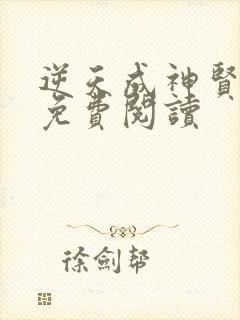 逆天成神賢
免費閱讀
徐劍幫